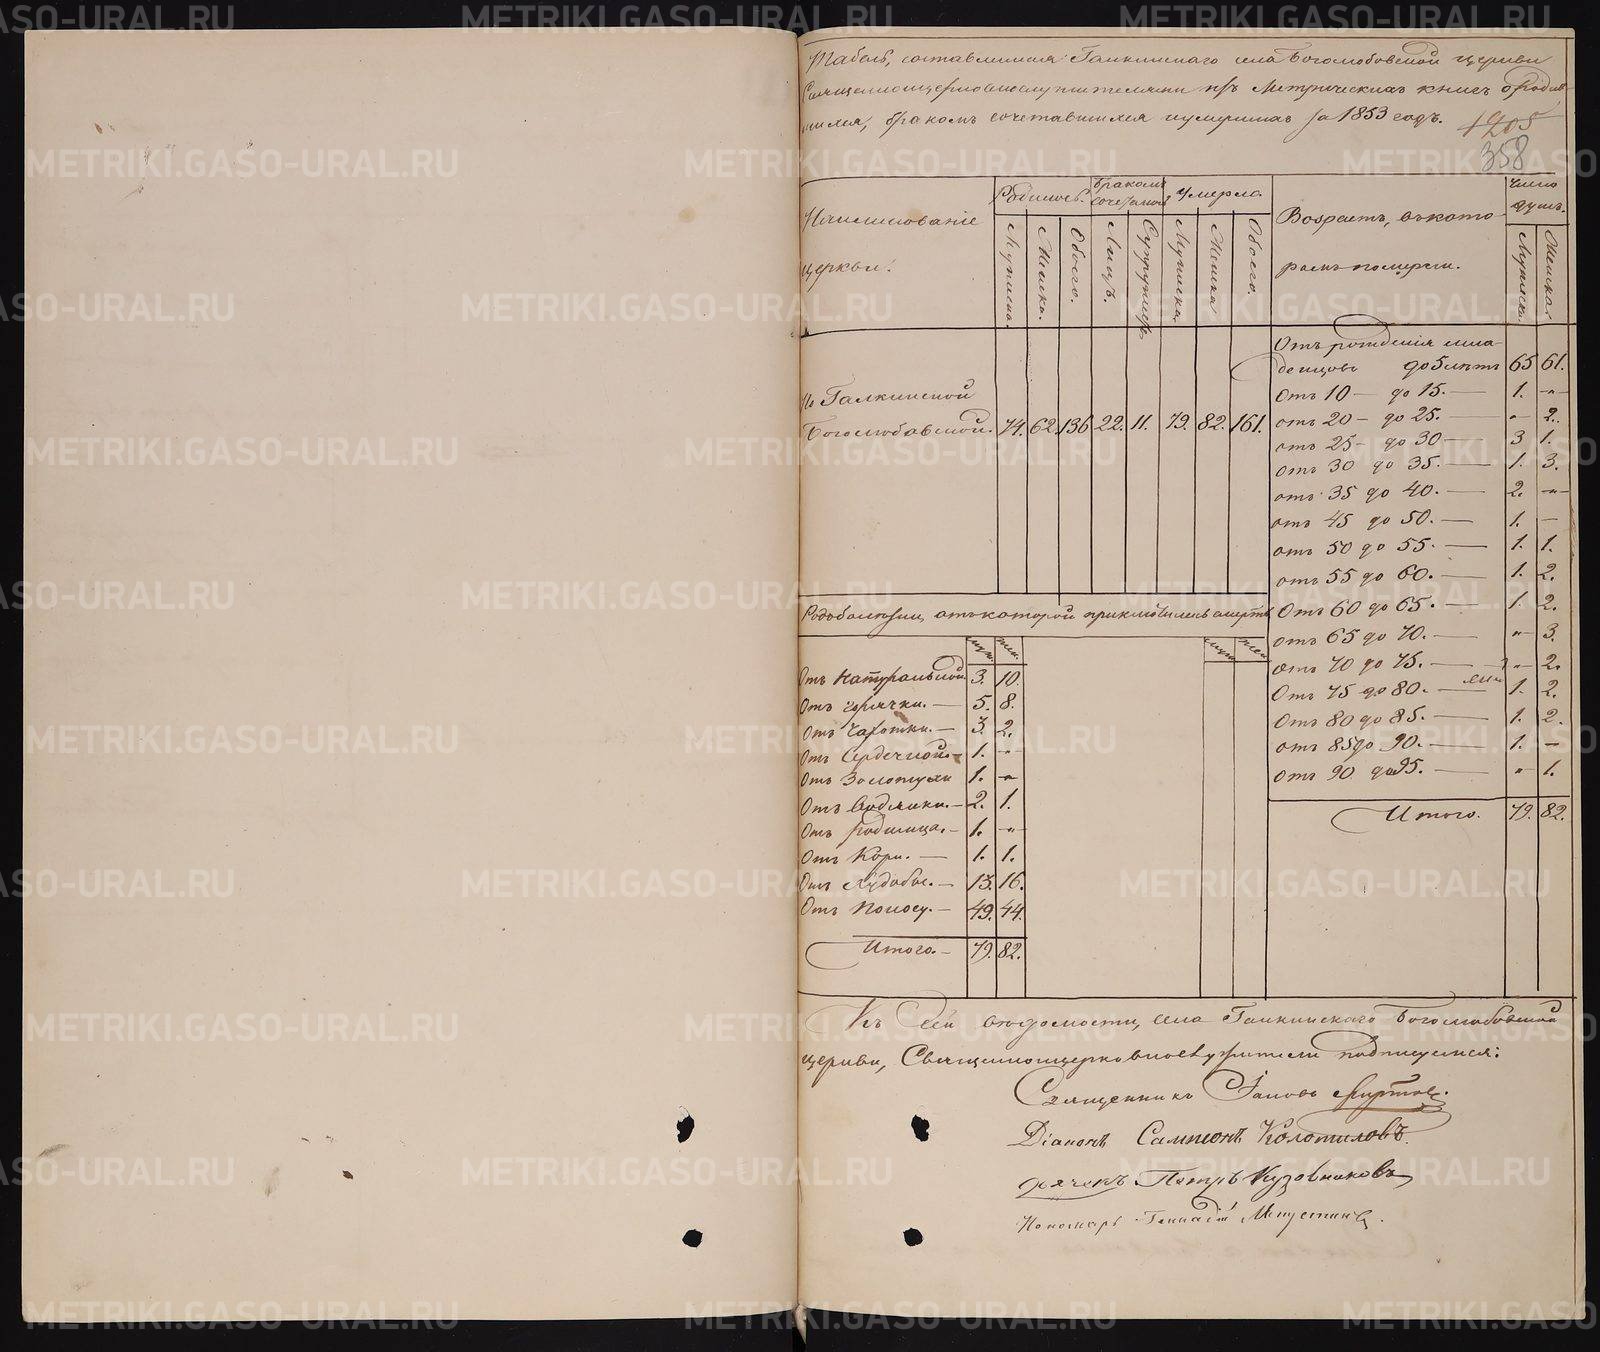 Табель, составленная Галкинскаго села Боголюбовской церкви
Священноцерковнослужителями изъ Метрическихъ книгъ о родив-
шихся, бракомъ сочетавшихся и умершихъ за 1853 годъ.
1205
358
Наименованіе
церкви.
Родилось.
Бракомъ
сочеталось
Умерло.
Возрастъ, въ кото-
ромъ померли.
Число
душъ.
Мужска.
Женска.
Обоего.
Лицъ.
Супружествъ.
Мужиска.
Женска.
Обоего.
Мужска.
Женска.
По Галкинской
Боголюбовской. 74. 62. 136 22. 11. 79. 82. 161.
Отъ рожденія мла-
денцовъ до 5 лѣтъ 65 61.
Отъ 10 — до 15. — 1. -"-
отъ 20 — до 25. — " 2.
отъ 25 — до 30 — 3 1.
отъ 30 до 35. — 1. 3.
отъ 35 до 40. — 2. -"-
отъ 45 до 50. — 1. —
отъ 50 до 55. — 1. 1.
отъ 55 до 60. — 1. 2.
Отъ 60 до 65. — 1. 2.
отъ 65 до 70. — " 3.
отъ 70 до 75. — " 2.
Отъ 75 до 80. — 1. 2.
Отъ 80 до 85. — 1. 2.
отъ 85 до 90. — 1. —
Отъ 90 до 95. — " 1.
Итого. 79. 82.
Родъ болѣзни, отъ которой приключилась смерть
муж. жен. муж. жен.
Отъ Натуральной 3. 10.
Отъ Горячки. — 5. 8.
Отъ Чахотки. — 3. 2.
Отъ Сердечной. — 1. -"-
Отъ Золотухи 1. -"-
Отъ Водянки. — 2. 1.
Отъ Родимца. — 1. -"-
Отъ Кори. — 1. 1.
Отъ Худобы. — 13. 16.
Отъ Поносу. — 49. 44.
Итого. — 79. 82.
Къ сей вѣдомости, села Галкинскаго Боголюбовской
церкви, Священноцерковнослужители подписуемся:
Священникъ Іаковъ
Діаконъ Сампсонъ Колотиловъ.
дьячекъ Петръ Кузовниковъ
Пономарь Геннадій
METRIKI.GASO-URAL.RU